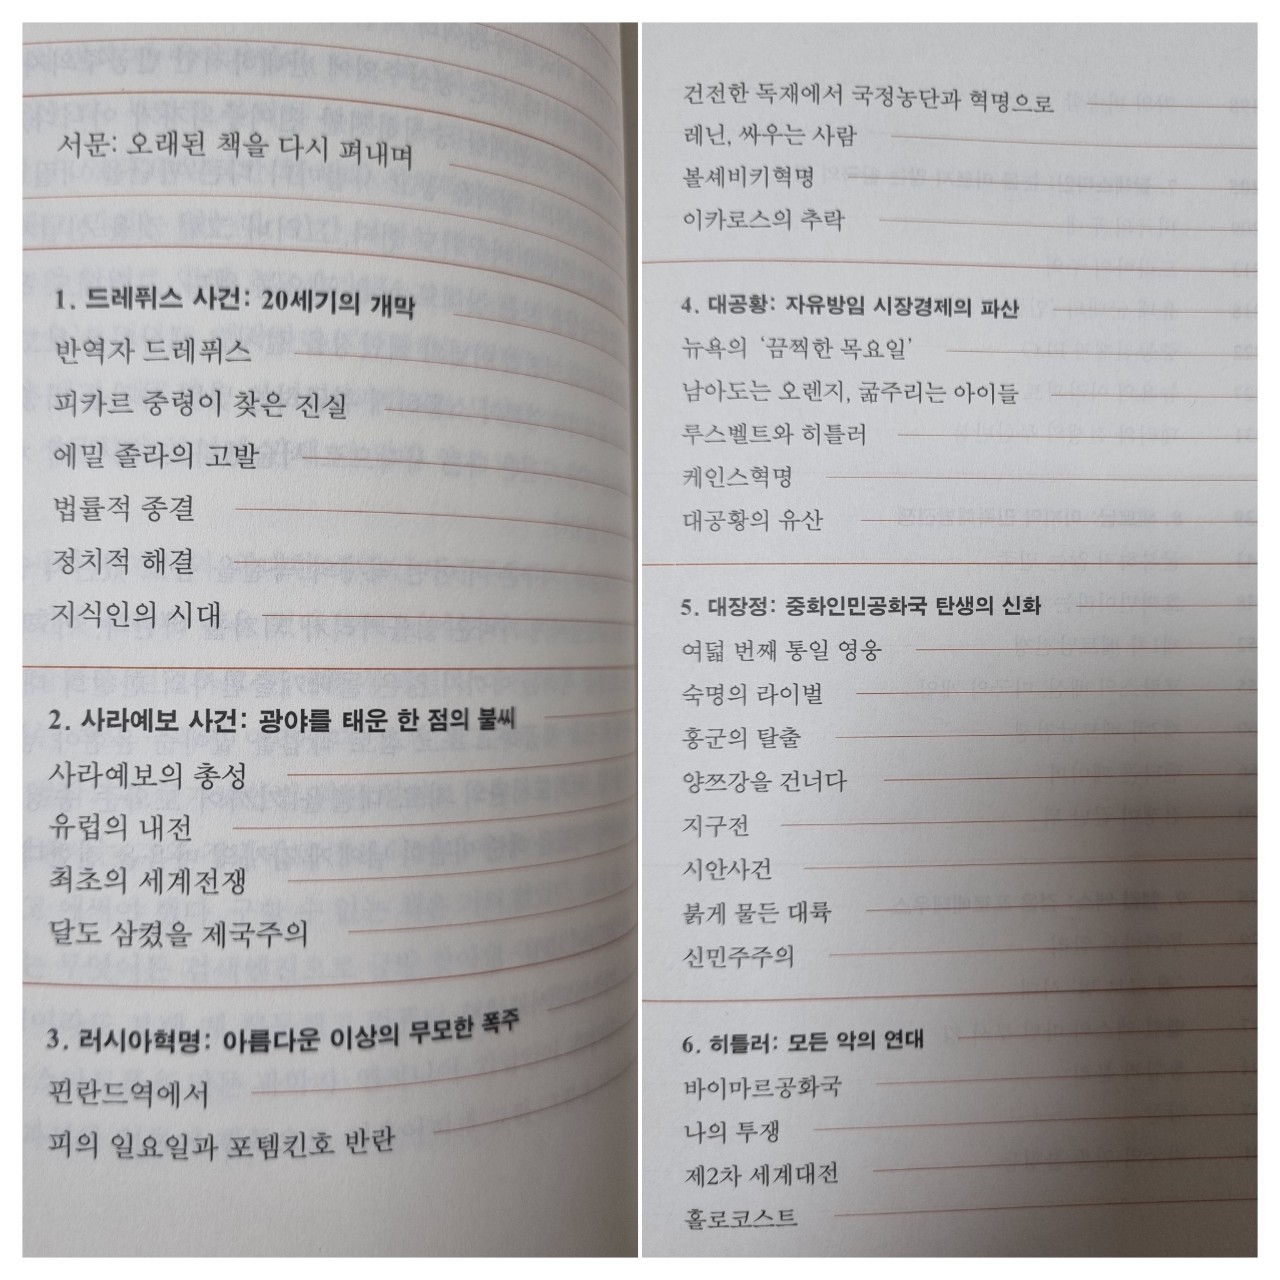 서문: 오래된 책을 다시 펴내며
1. 드레퓌스 사건: 20세기의 개막
반역자 드레퓌스
피카르 중령이 찾은 진실
에밀 졸라의 고발
법률적 종결
정치적 해결
지식인의 시대
2. 사라예보 사건: 광야를 태운 한 점의 불씨
사라예보의 총성
유럽의 내전
최초의 세계전쟁
달도 삼켰을 제국주의
3. 러시아혁명: 아름다운 이상의 무모한 폭주
핀란드역에서
피의 일요일과 포템킨호 반란
건전한 독재에서 국정농단과 혁명으로
레닌, 싸우는 사람
볼셰비키혁명
이카로스의 추락
4. 대공황: 자유방임 시장경제의 파산
뉴욕의 ‘끔찍한 목요일’
남아도는 오렌지, 굶주리는 아이들
루스벨트와 히틀러
케인스혁명
대공황의 유산
5. 대장정: 중화인민공화국 탄생의 신화
여덟 번째 통일 영웅
숙명의 라이벌
홍군의 탈출
양쯔강을 건너다
지구전
시안사건
붉게 물든 대륙
신민주주의
6. 히틀러: 모든 악의 연대
바이마르공화국
나의 투쟁
제2차 세계대전
홀로코스트